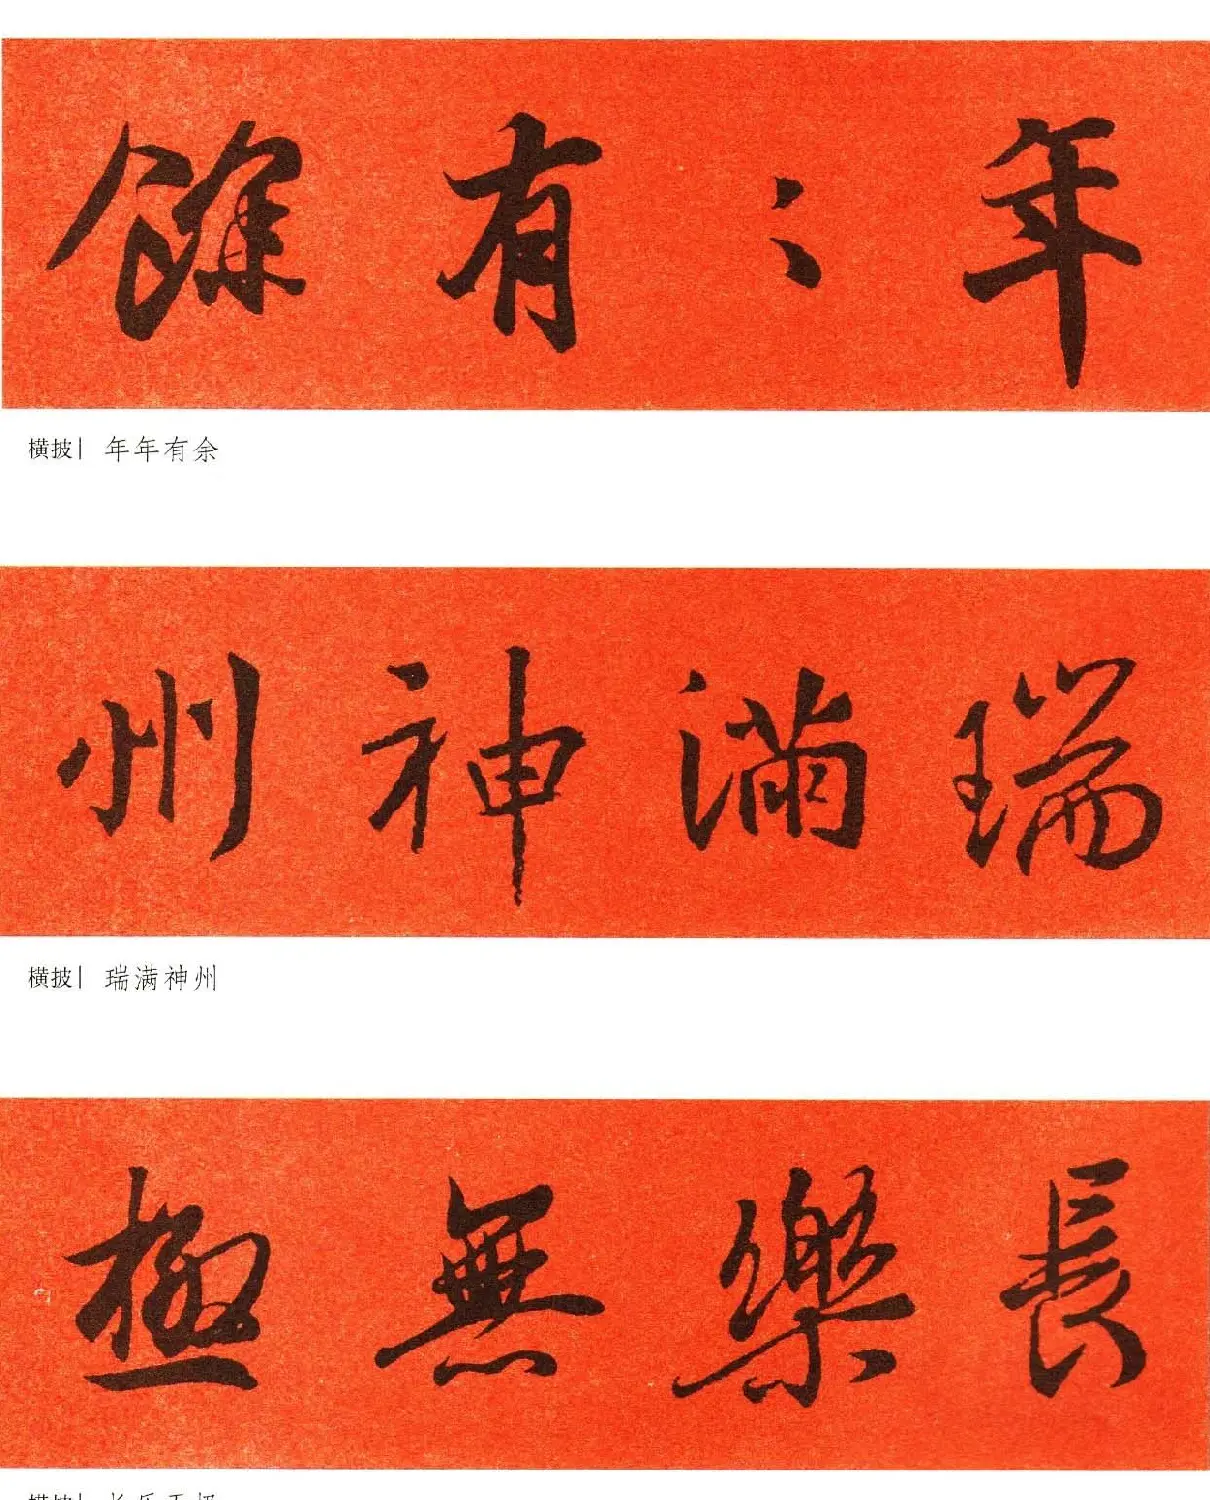 年〻有餘
横披| 年年有余
瑞滿神州
横披| 瑞满神州
長樂無極
横披| 长乐无极